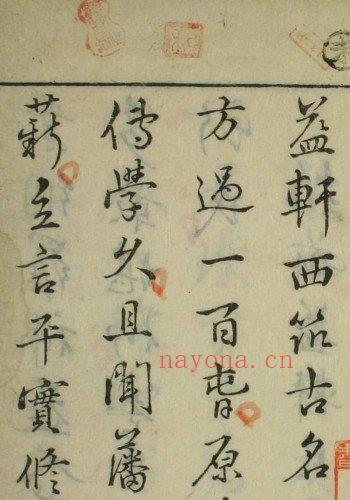 益軒西筑古名
方過一百旾原
博學久且聞藩
薪立言平實修
nayona.cn